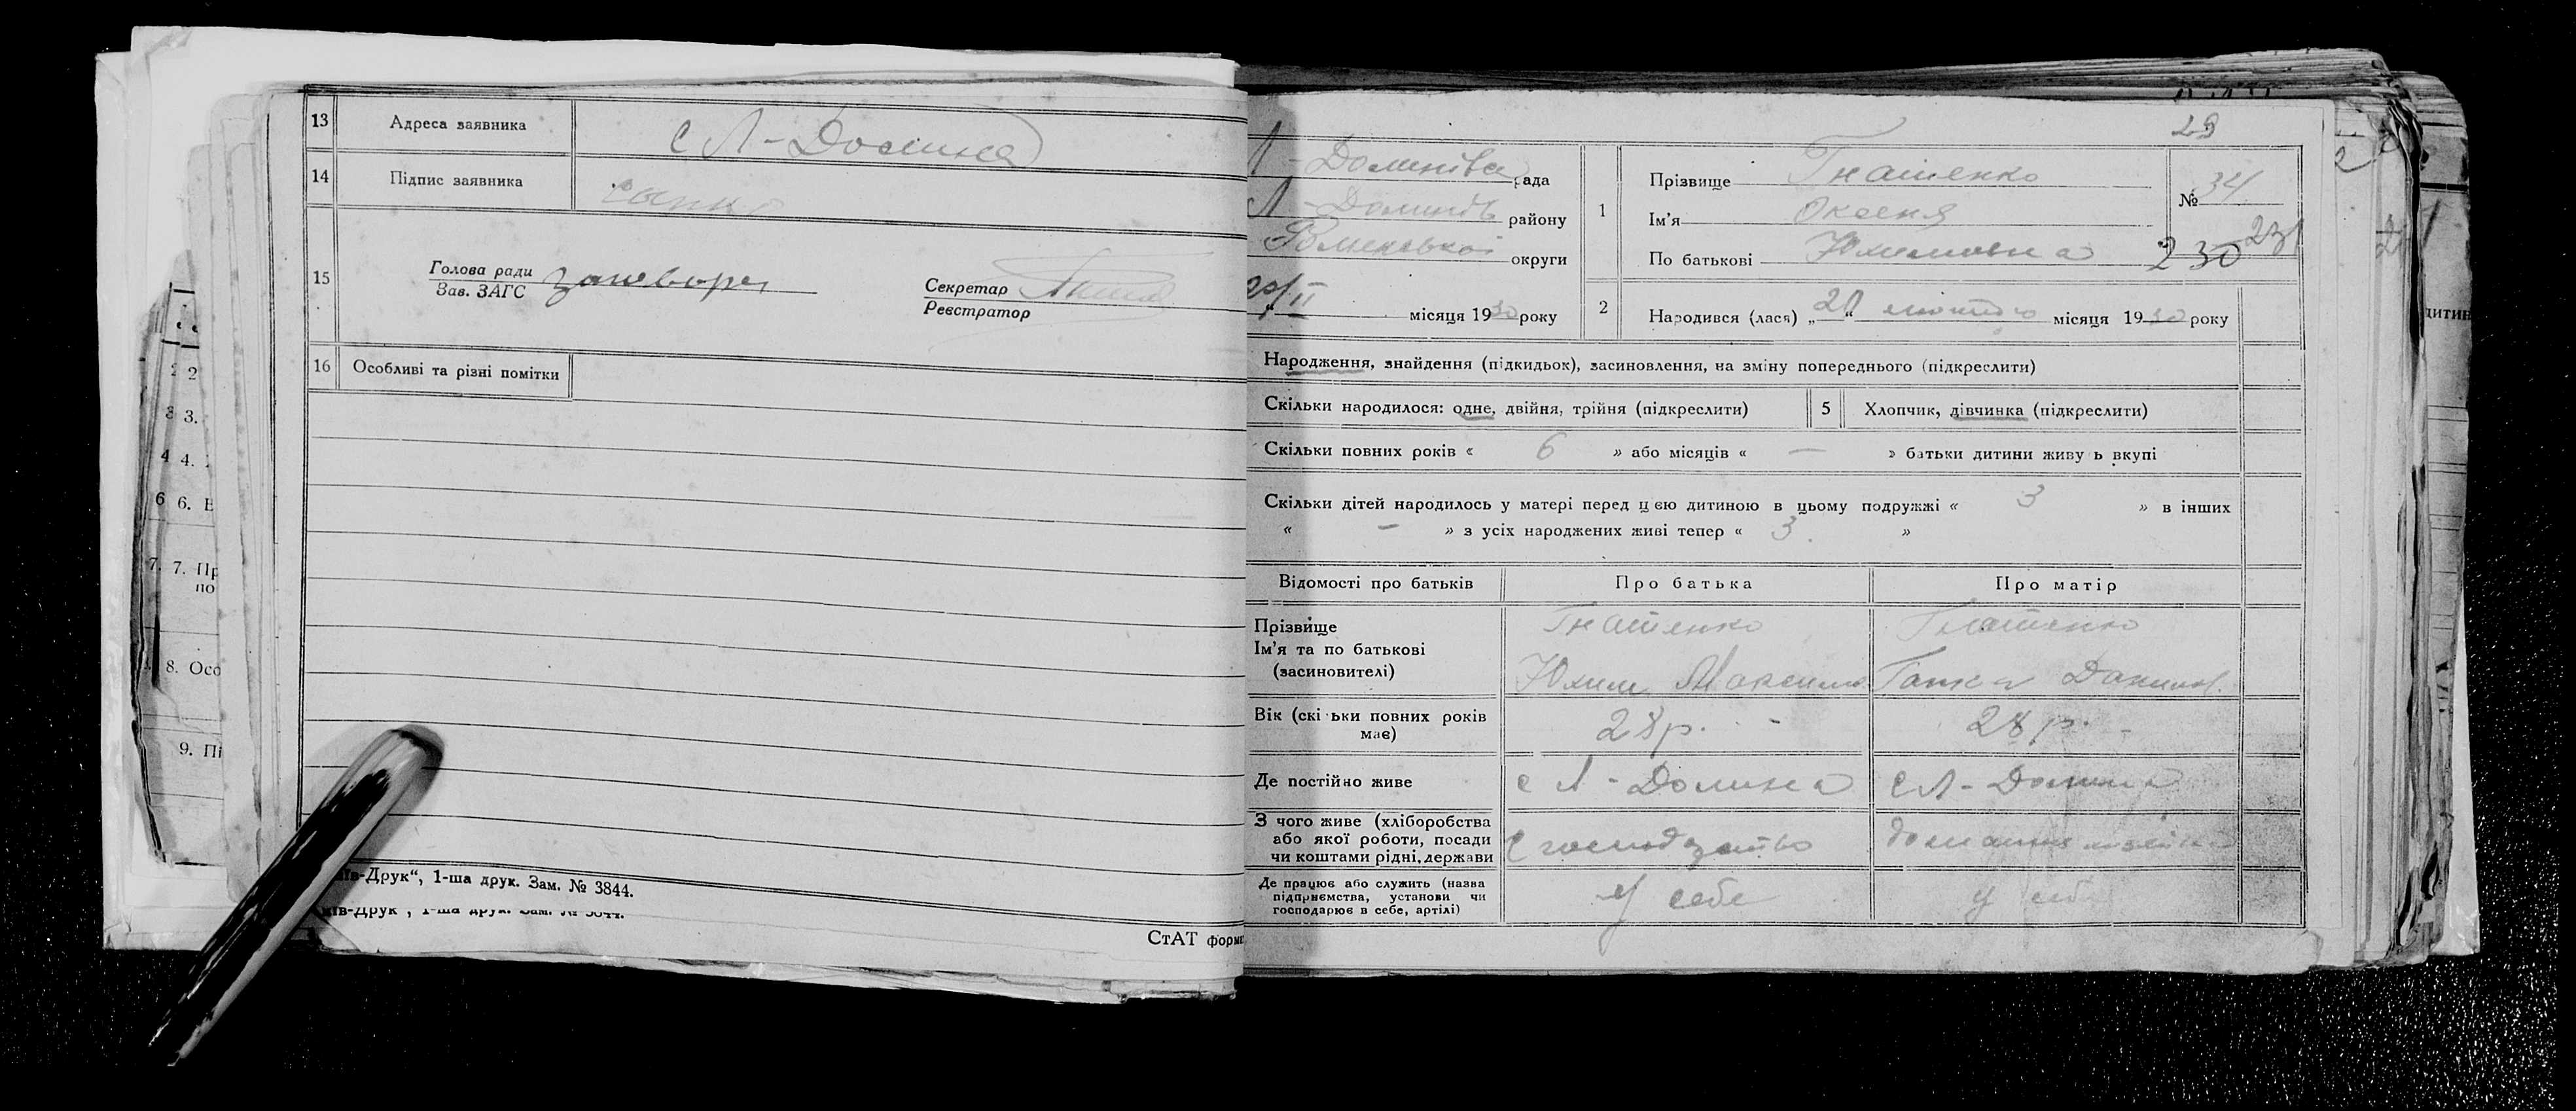 13 Адреса заявника с Л-Долина
14 Підпис заявника
15 Голова ради
Зав. ЗАГС
Секретар
Реєстратор
16 Особливі та різні помітки
2 2
3 3.
4 4.
6 6.
7. 7. Пр
по
8. Осо
9. Пі
-Друк“, 1-ша друк. Зам. № 3844.
СтАТ форм
29
Л-Долинська рада
Л-Долинськ району
Роменської округи
20/II місяця 1930 року
1 Прізвище Гнатенко
№ 34
Ім'я Оксеня
По батькові Юхимовна
230 231
2 Народився (лася) „20“ лютого місяця 1930 року
Народження, знайдення (підкидьок), засиновлення, на зміну попереднього (підкреслити)
Скільки народилося: одне, двійня, трійня (підкреслити)
5 Хлопчик, дівчинка (підкреслити)
Скільки повних років « 6 » або місяців « — » батьки дитини живу ь вкупі
Скільки дітей народилось у матері перед цією дитиною в цьому подружжі « 3 » в інших
« — » з усіх народжених живі тепер « 3 »
Відомості про батьків Про батька Про матір
Прізвище
Ім'я та по батькові
(засновителі)
Гнатенко
Юхим Максимов
Гнатенко
Ганна Данилов.
Вік (скі ьки повних років
має)
28 р. -
28 р. -
Де постійно живе с Л-Долина с Л-Долина
З чого живе (хліборобства
або якої роботи, посади
чи коштами рідні, держави
с господарство
домашня
Де працює або служить (назва
підприємства, установи чи
господарює в себе, артілі)
У себе
у себе